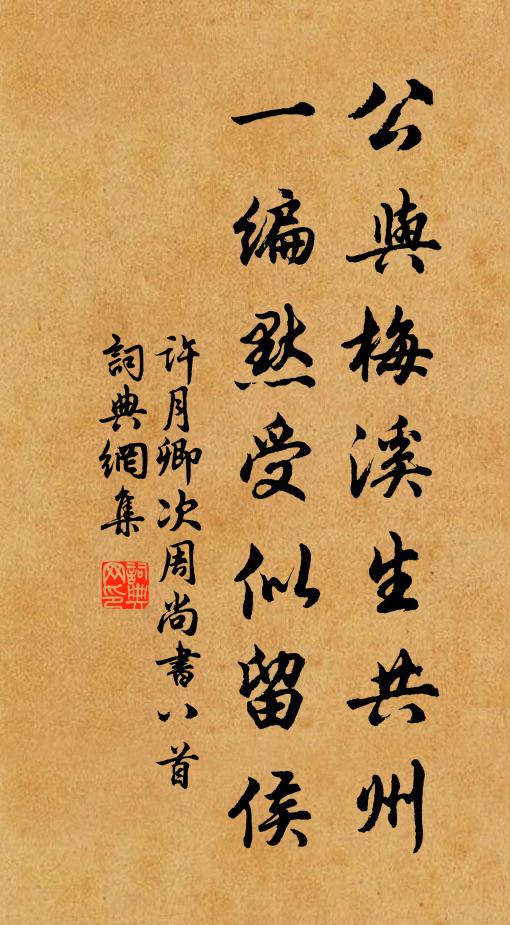 公與梅溪生共州
一編默受似留侯
許月卿次周尚書八首
詞典網集
詞典网印